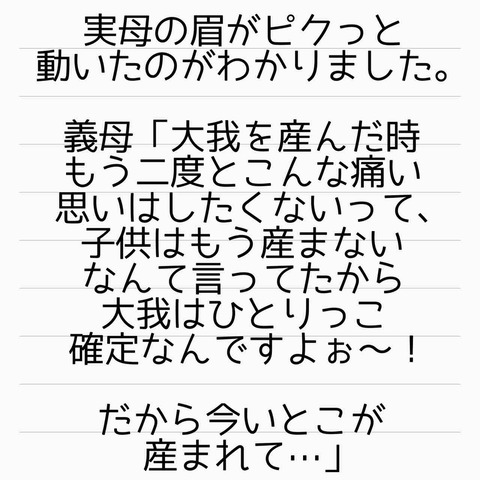 実母の眉がピクっと
動いたのがわかりました。
義母「大我を産んだ時
もう二度とこんな痛い
思いはしたくないって、
子供はもう産まない
なんて言ってたから
大我はひとりっこ
確定なんですよぉ〜！
だから今いとこが
産まれて…」